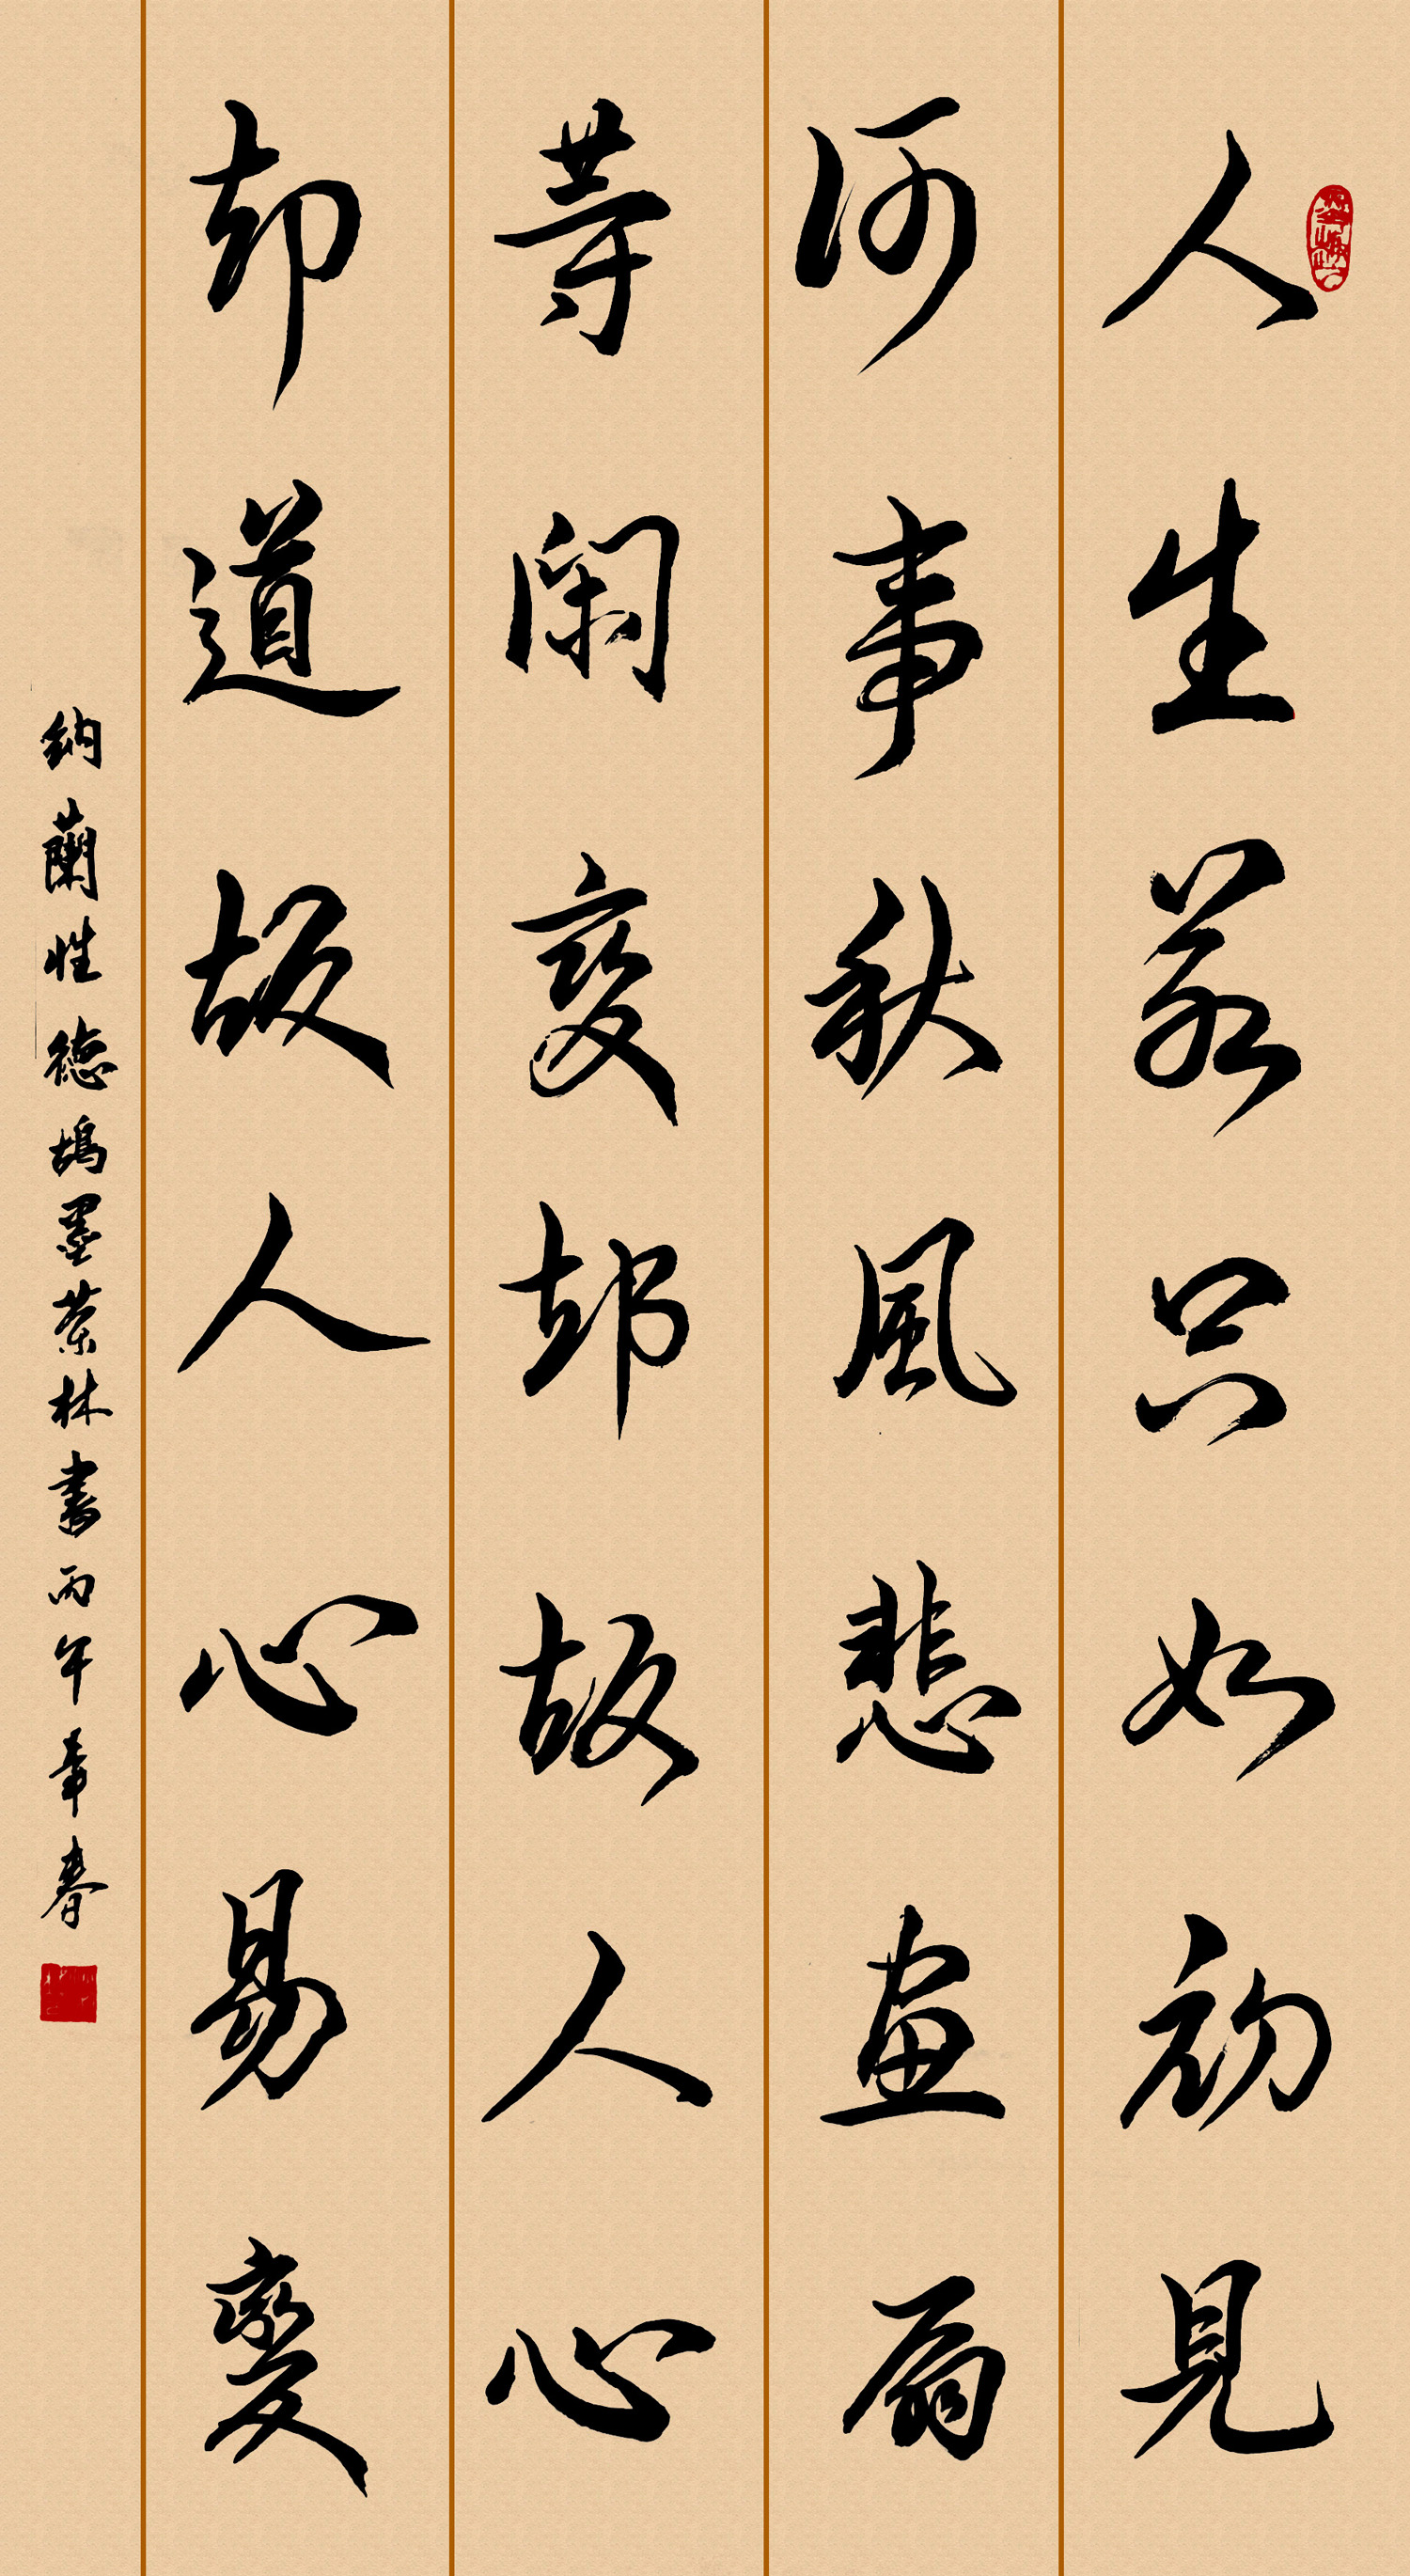 人生若只如初見
何事秋風悲画扇
等閑變却故人心
却道故人心易變
納蘭性德塢墨林書丙午春